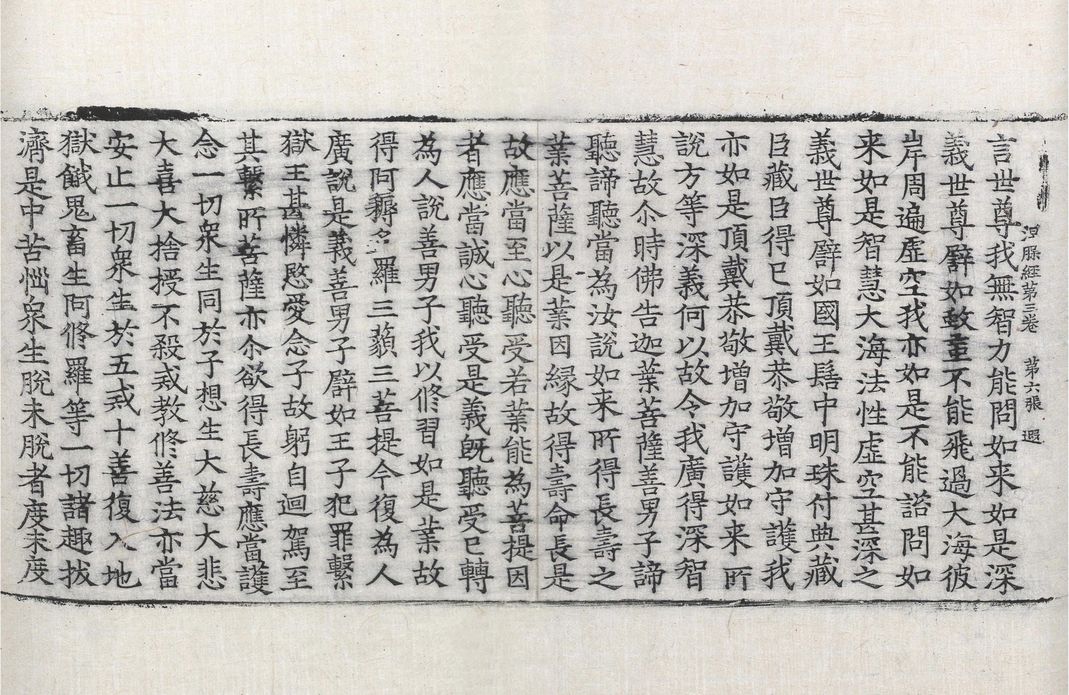 湼槃經第三卷　第六張　遐
言世尊我無智力能問如来如是深
義世尊譬如蚊䖟不能飛過大海彼
岸周遍虛空我亦如是不能諮問如
来如是智慧大海法性虛空甚深之
義世尊譬如國王髻中明珠付典藏
臣藏臣得已頂戴恭敬增加守護我
亦如是頂戴恭敬增加守護如来所
說方等深義何以故令我廣得深智
慧故尒時佛告迦葉菩薩善男子諦
聽諦聽當為汝說如来所得長壽之
業菩薩以是業因緣故得壽命長是
故應當至心聽受若業能為菩提因
者應當誠心聽受是義旣聽受已轉
為人說善男子我以修習如是業故
得阿耨多羅三藐三菩提今復為人
廣說是義善男子譬如王子犯罪繫
獄王甚憐愍愛念子故躬自迴駕至
其繫所菩薩亦尒欲得長壽應當護
念一切衆生同於子想生大慈大悲
大喜大捨授不殺戒教修善法亦當
安止一切衆生於五戒十善復入地
獄餓鬼畜生阿修羅等一切諸趣拔
濟是中苦惱衆生脫未脫者度未度